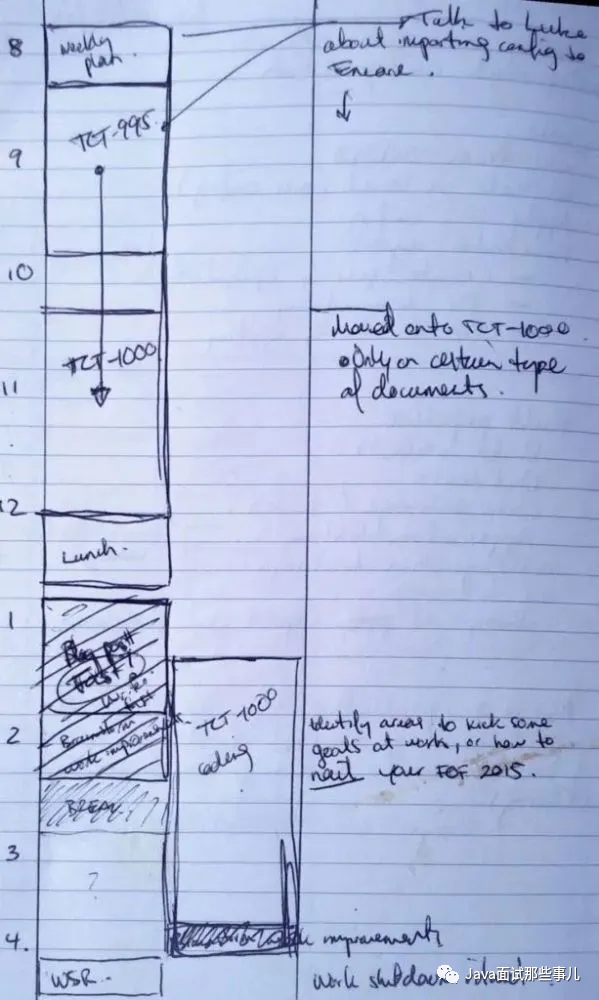 8
weekly
plan.
Talk to Luke
about importing config to
TCT-995
9
10
TCT-1000
11
Moved onto TCT-1000
• Only on certain type
of documents.
12
Lunch.
1
Blog post
2
Brainstorm
work improvements
TCT-1000
coding
identify areas to kick some
goals at work, or how to
nail your FOF 2015.
BREAK
3
?
4.
work improvements
WSR.
work shutdown
Java面试那些事儿